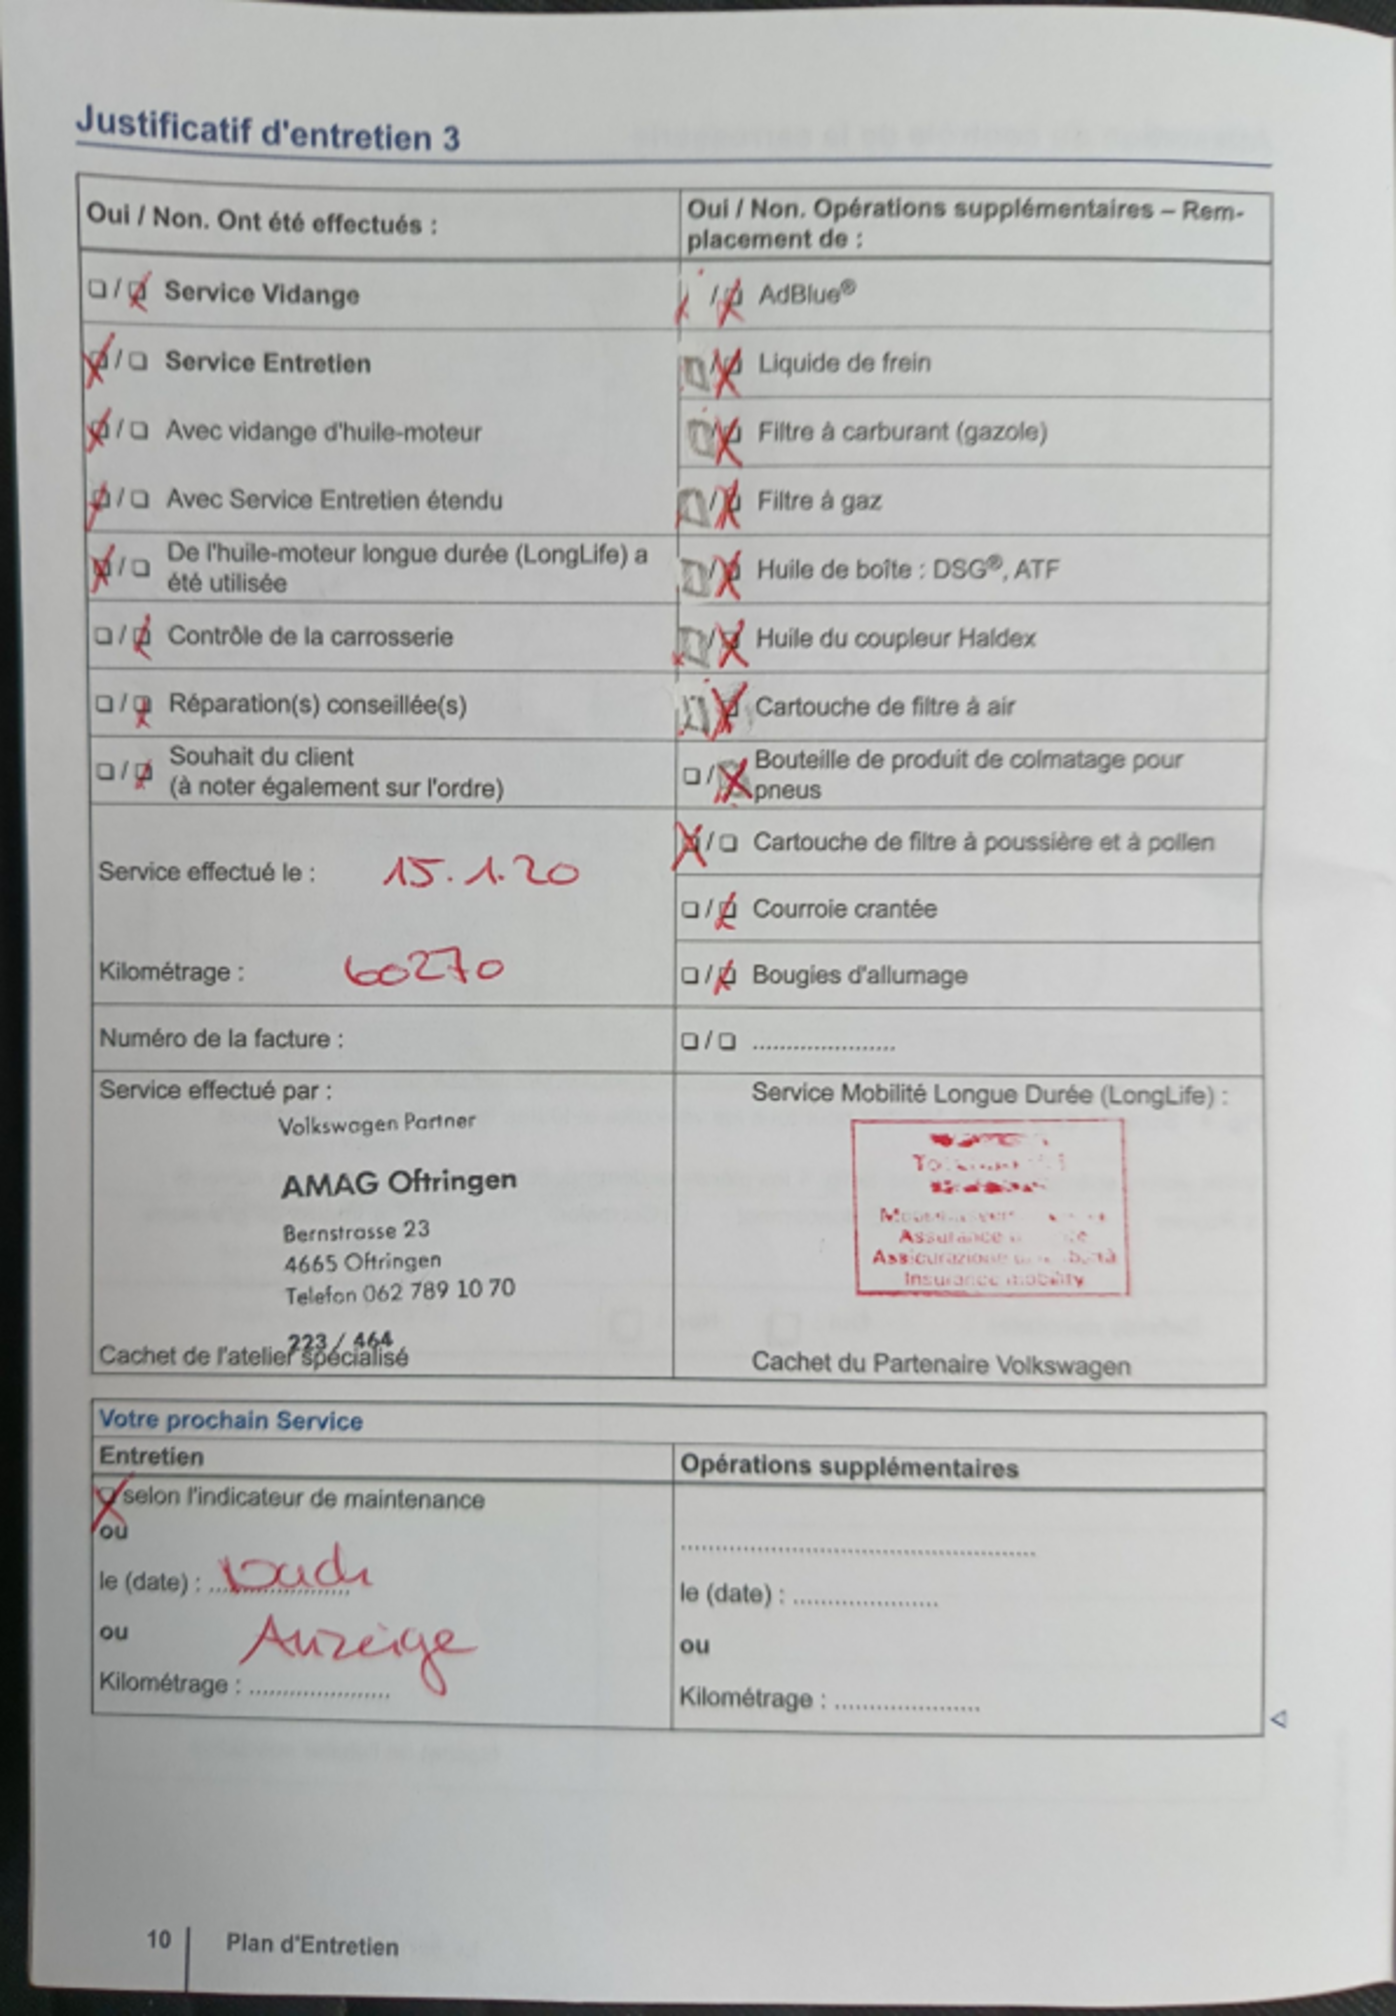 Justificatif d'entretien 3
Oui / Non. Ont été effectués :
❏ / ❏ Service Vidange
❏ / ❏ Service Entretien
❏ / ❏ Avec vidange d'huile-moteur
❏ / ❏ Avec Service Entretien étendu
❏ / ❏ De l'huile-moteur longue durée (LongLife) a
été utilisée
❏ / ❏ Contrôle de la carrosserie
❏ / ❏ Réparation(s) conseillée(s)
❏ / ❏ Souhait du client
(à noter également sur l'ordre)
Service effectué le : 15.1.20
Kilométrage : 60270
Numéro de la facture :
Service effectué par :
Volkswagen Partner
AMAG Oftringen
Bernstrasse 23
4665 Oftringen
Telefon 062 789 10 70
223 / 464
Cachet de l'atelier spécialisé
Oui / Non. Opérations supplémentaires – Rem-
placement de :
/ ❏ AdBlue®
❏ / ❏ Liquide de frein
❏ / ❏ Filtre à carburant (gazole)
❏ / ❏ Filtre à gaz
❏ / ❏ Huile de boîte : DSG®, ATF
❏ / ❏ Huile du coupleur Haldex
❏ / ❏ Cartouche de filtre à air
❏ / ❏ Bouteille de produit de colmatage pour
pneus
❏ / ❏ Cartouche de filtre à poussière et à pollen
❏ / ❏ Courroie crantée
❏ / ❏ Bougies d'allumage
❏ / ❏ .....................
Service Mobilité Longue Durée (LongLife) :
Assurance
Assicurazione
Insurance mobility
Cachet du Partenaire Volkswagen
Votre prochain Service
Entretien
❏ selon l'indicateur de maintenance
ou
le (date) : nach
ou Anzeige
Kilométrage : .....................
Opérations supplémentaires
.....................................................
le (date) : .....................
ou
Kilométrage : .....................
10 Plan d'Entretien